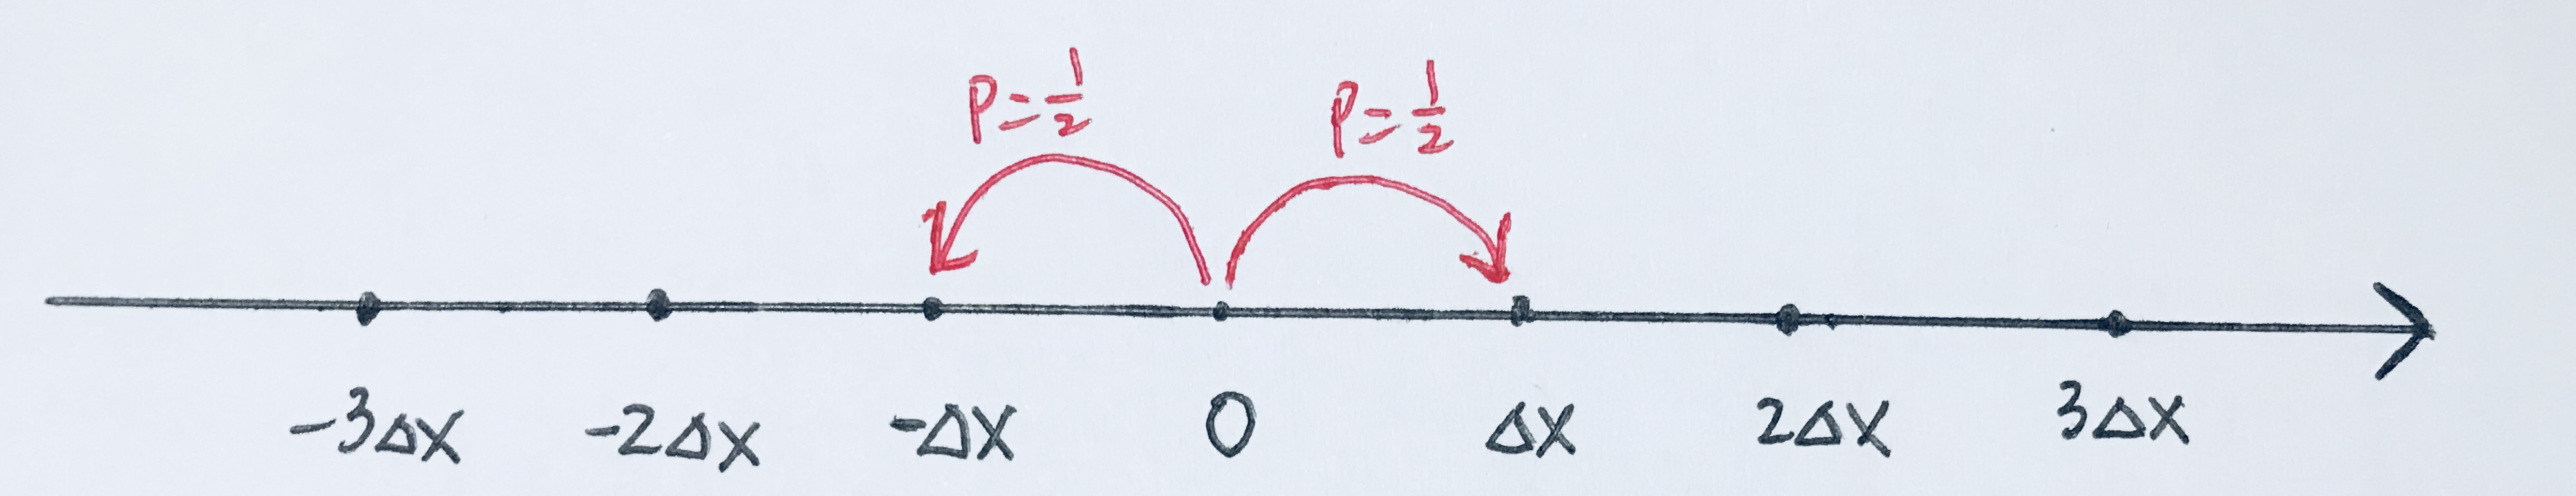 P=1/2 P=1/2
-3ΔX -2ΔX -ΔX 0 ΔX 2ΔX 3ΔX